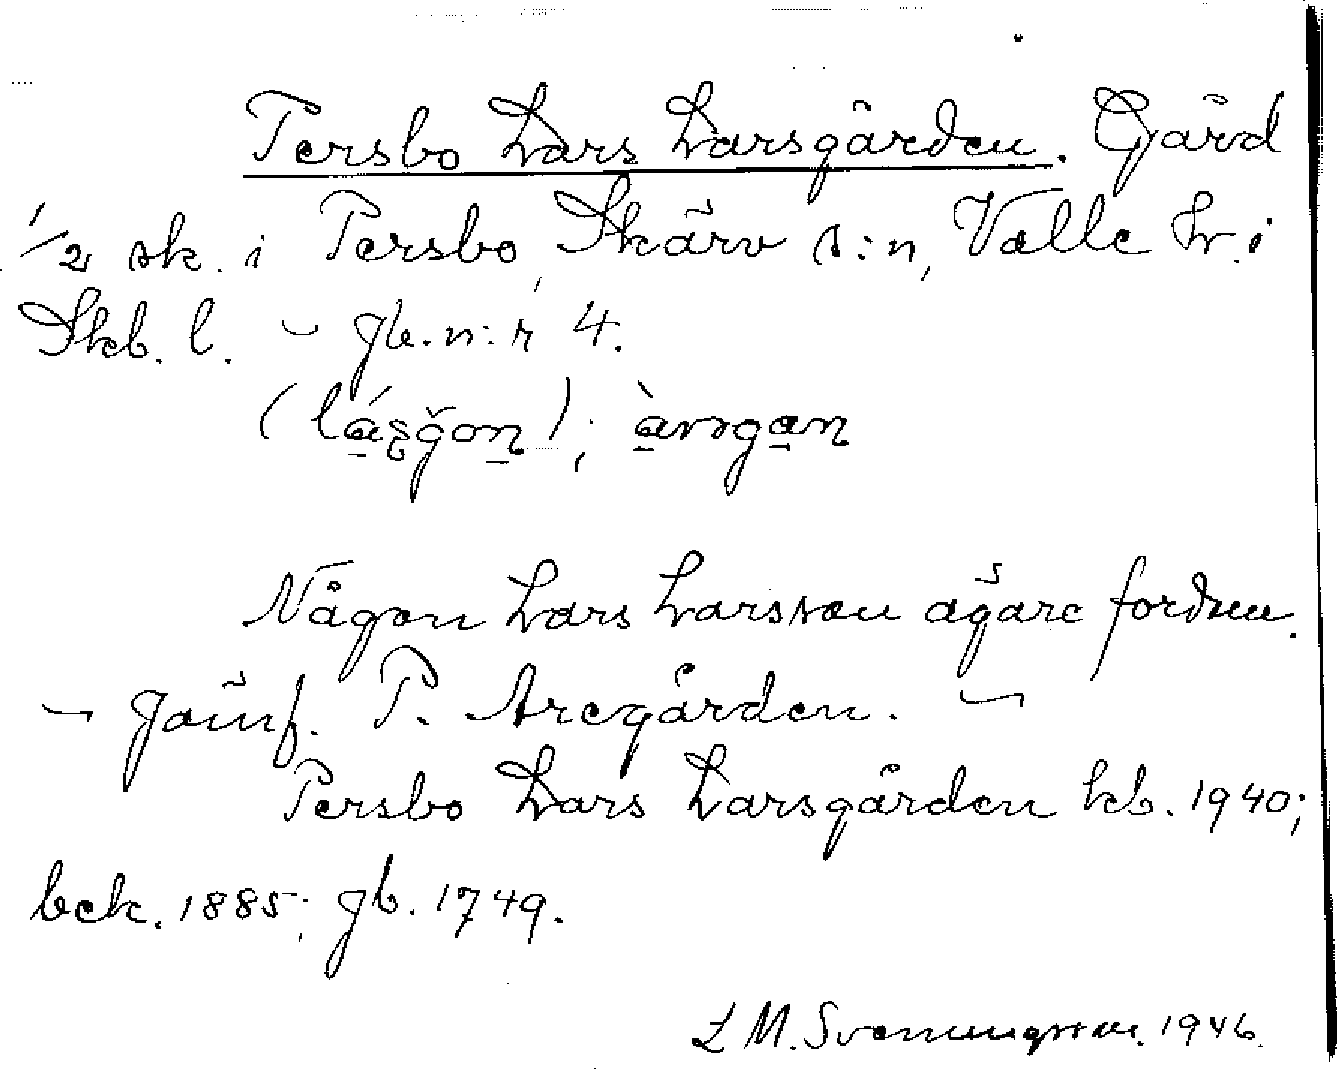 Persbo Lars Larsgården. Gård
1/2 sk. i Persbo, Skärv s:n, Valle hr. i
Skb. l. - jb. n:r 4.
Någon Lars Larsson ägare fordom.
- Jämf. P. Aregården. -
Persbo Lars Larsgården kb. 1940;
bck. 1885; jb. 1749.
L M. Svenungsson. 1946.